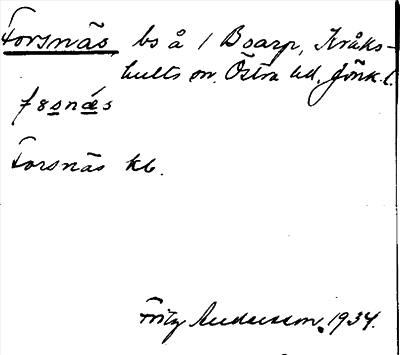 Forsnäs bs å 1 Bsarp, Kråks-
hults sn. Östra hd. Jönk. l.
fɵsnæs
Forsnäs kb.
Fritz Andersson. 1934.